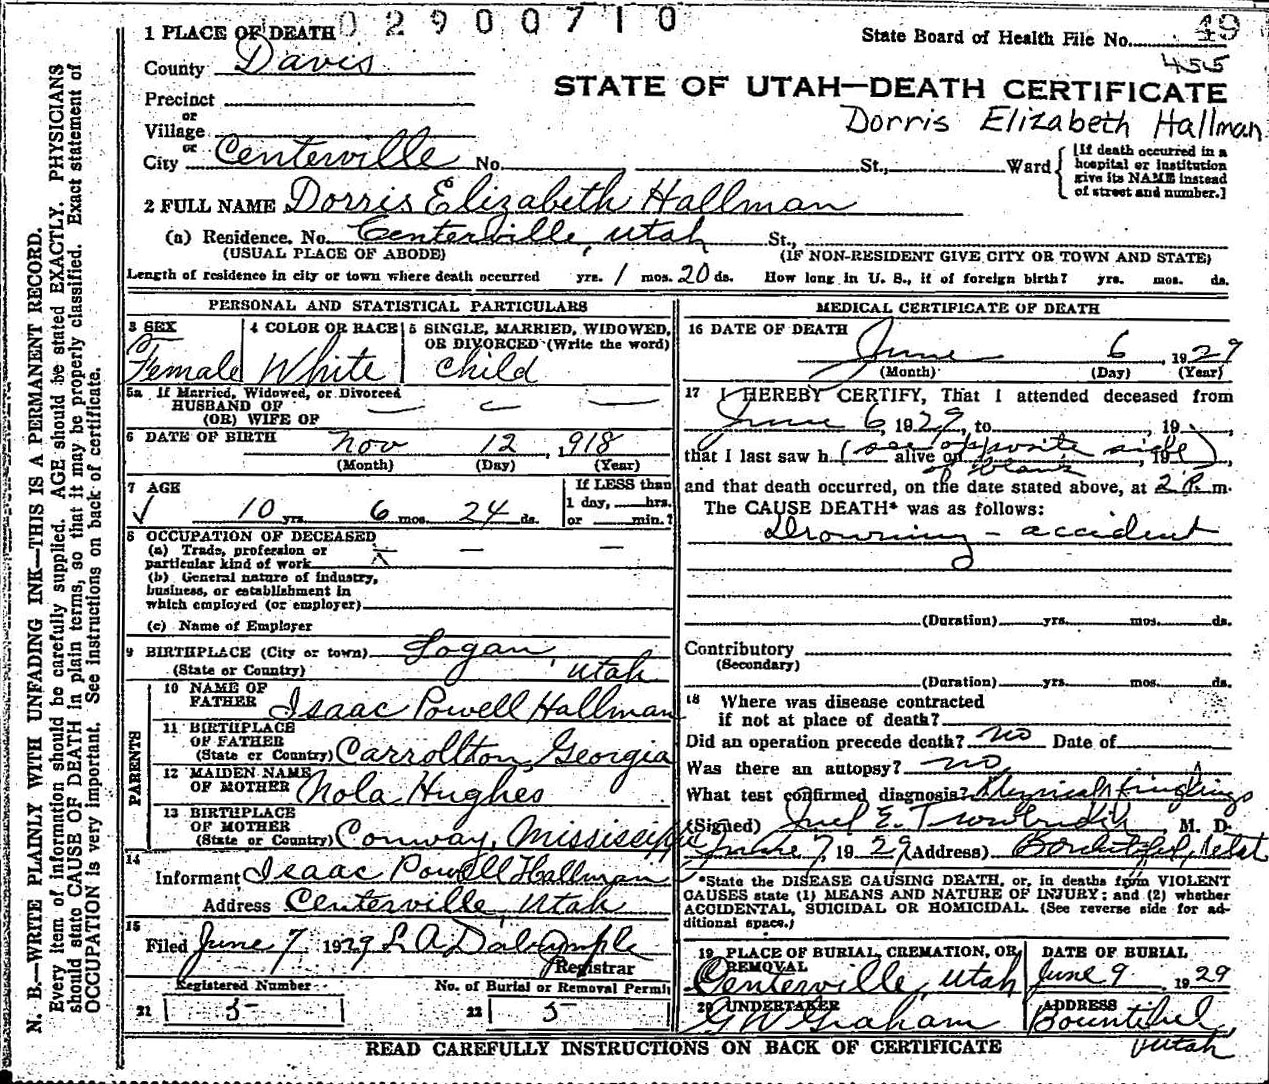 02900710
1 PLACE OF DEATH
State Board of Health File No. 49
455
County Davis
STATE OF UTAH—DEATH CERTIFICATE
Precinct
or
Village
Dorris Elizabeth Hallman
or
City Centerville No. St., Ward
[If death occurred in a hospital or institution give its NAME instead of street and number.]
2 FULL NAME Dorris Elizabeth Hallman
(a) Residence. No. Centerville, Utah St.,
(USUAL PLACE OF ABODE) (IF NON-RESIDENT GIVE CITY OR TOWN AND STATE)
Length of residence in city or town where death occurred yrs. 1 mos. 20 ds. How long in U. S., if of foreign birth? yrs. mos. ds.
PERSONAL AND STATISTICAL PARTICULARS
3 SEX
Female
4 COLOR OR RACE
White
5 SINGLE, MARRIED, WIDOWED,
OR DIVORCED (Write the word)
Child
5a If Married, Widowed, or Divorced
HUSBAND OF
(OR) WIFE OF
6 DATE OF BIRTH Nov 12, 1918
(Month) (Day) (Year)
7 AGE
10 yrs. 6 mos. 24 ds.
If LESS than
1 day, hrs.
or min.?
8 OCCUPATION OF DECEASED
(a) Trade, profession or
particular kind of work
(b) General nature of industry,
business, or establishment in
which employed (or employer)
(c) Name of Employer
9 BIRTHPLACE (City or town) Logan,
(State or Country) Utah
PARENTS
10 NAME OF
FATHER Isaac Powell Hallman
11 BIRTHPLACE
OF FATHER
(State or Country) Carrollton, Georgia
12 MAIDEN NAME
OF MOTHER Nola Hughes
13 BIRTHPLACE
OF MOTHER
(State or Country) Conway, Mississippi
14
Informant Isaac Powell Hallman
Address Centerville, Utah
15
Filed June 7 1929 L A Dalrymple
Registrar
Registered Number No. of Burial or Removal Permit
21 5 22 5
MEDICAL CERTIFICATE OF DEATH
16 DATE OF DEATH
June 6, 1929
(Month) (Day) (Year)
17 I HEREBY CERTIFY, That I attended deceased from
June 6, 1929, to , 19 ,
that I last saw h (see opposite side) alive on , 19
of blank
and that death occurred, on the date stated above, at 2 P. m.
The CAUSE DEATH* was as follows:
Drowning - accident
(Duration) yrs. mos. ds.
Contributory
(Secondary)
(Duration) yrs. mos. ds.
18 Where was disease contracted
if not at place of death?
Did an operation precede death? no Date of
Was there an autopsy? no
What test confirmed diagnosis?
(Signed) E. M. D.
June 7, 1929 (Address) Bountiful,
*State the DISEASE CAUSING DEATH, or, in deaths from VIOLENT
CAUSES state (1) MEANS AND NATURE OF INJURY; and (2) whether
ACCIDENTAL, SUICIDAL OR HOMICIDAL. (See reverse side for ad-
ditional space.)
19 PLACE OF BURIAL, CREMATION, OR
REMOVAL
Centerville, Utah
DATE OF BURIAL
June 9, 1929
20 UNDERTAKER
G W Graham
ADDRESS
Bountiful,
Utah
READ CAREFULLY INSTRUCTIONS ON BACK OF CERTIFICATE
N. B.—WRITE PLAINLY WITH UNFADING INK—THIS IS A PERMANENT RECORD.
Every item of information should be carefully supplied. AGE should be stated EXACTLY. PHYSICIANS
should state CAUSE OF DEATH in plain terms, so that it may be properly classified. Exact statement of
OCCUPATION is very important. See instructions on back of certificate.